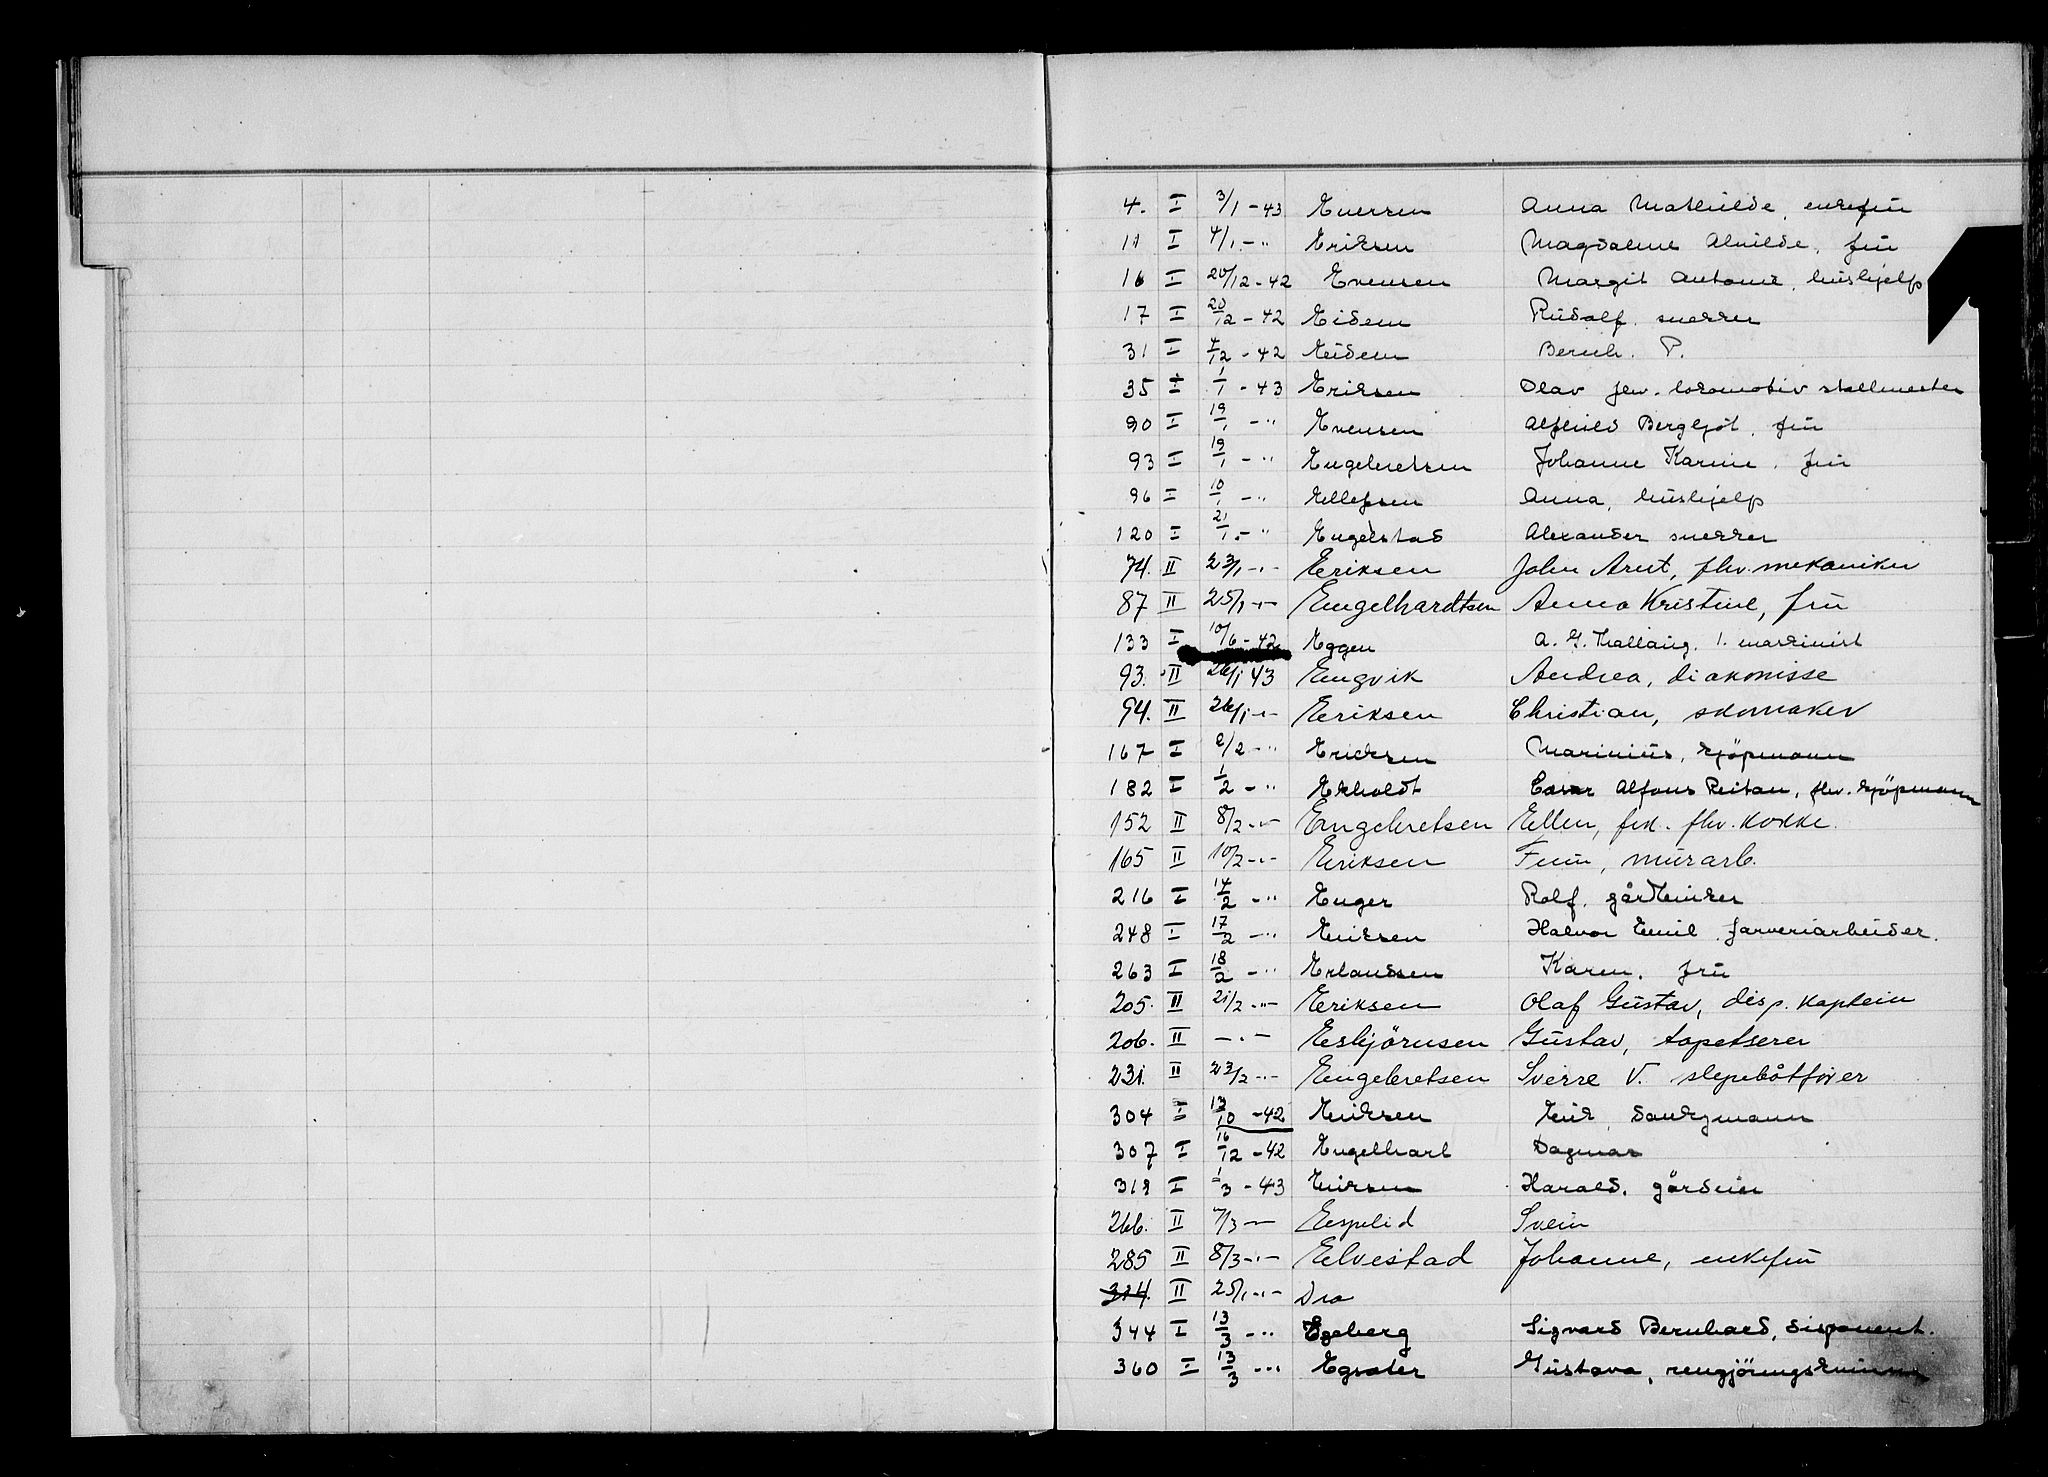 4. I 3/1 - 43 Enersen Anna Mathilde, enkefrü
11 I 4/1 - " Eriksen Magdalene Alvilde, frü
16 I 20/12 - 42 Evensen Margit Antonie, hüshjelp
17 I 20/12 - 42 Eidem Rüdolf. snekker
31 I 4/12 - 42 Eidem Bernh. P.
35 I 1/1 - 43 Eriksen Olav fhv. lokomotiv stallmester
90 I 19/1 - " Evensen Alfhild Bergljot, frü
93 I 19/1 - " Engebretsen Johanne Karine, frü
96 I 10/1 - " Ellefsen Anna, hüshjelp
120 I 21/1 - " Engelstad Alexander snekker
74. II 23/1 - " - Eriksen John Arnt, fhv. mekaniker
87 II 25/1 - " - Engelhardtsen Anna Kristine, frü
133 I 10/6 - 42 Eggen A. G. Hallang. 1. maskinist
93. II 26/1 43 Engvik Andrea, diakonisse
94. II 26/1 - " - Eriksen Christian, skomaker
167 I 2/2 - " Ericksen Mariniüs, kjöpmann
182 I 1/2 - " Ekholdt Alfons Reitan, fhv. kjöpmann
152 II 8/2 - " - Engebretsen Ellen, frk. fhv. kokke.
165 II 10/2 - " - Eriksen Finn, mürarb.
216 I 14/2 - " Enger Rolf, gårtbrüker
248 I 17/2 - " Eriksen Halvor Emil. farveriarbeider.
263 I 18/2 - " Erlandsen Karen. frü
205. II 21/2 - " - Eriksen Olaf Güstav, disp. kaptein
206. II - " - Esbjörnsen Güstav, tapetserer
231. II 23/2 - " - Engebretsen Sverre V. slepebåtförer
304 I 13/10 - 42 Eriksen Erik, sandkjmann
307 I 16/12 - 42 Engelhart Dagmar
319 I 1/3 - 43 Eriksen Harald. gårdeier
266. II 7/3 - Espelid Svein
285 II 8/3 - " - Elvestad Johanne, enkefrü
324. II 25/1 - " - Dra
344 I 13/3 - " Egeberg Sigvard Bernhard, disponent.
360 I 13/3 - " Egsæter Güstava, rengjöringskvinne